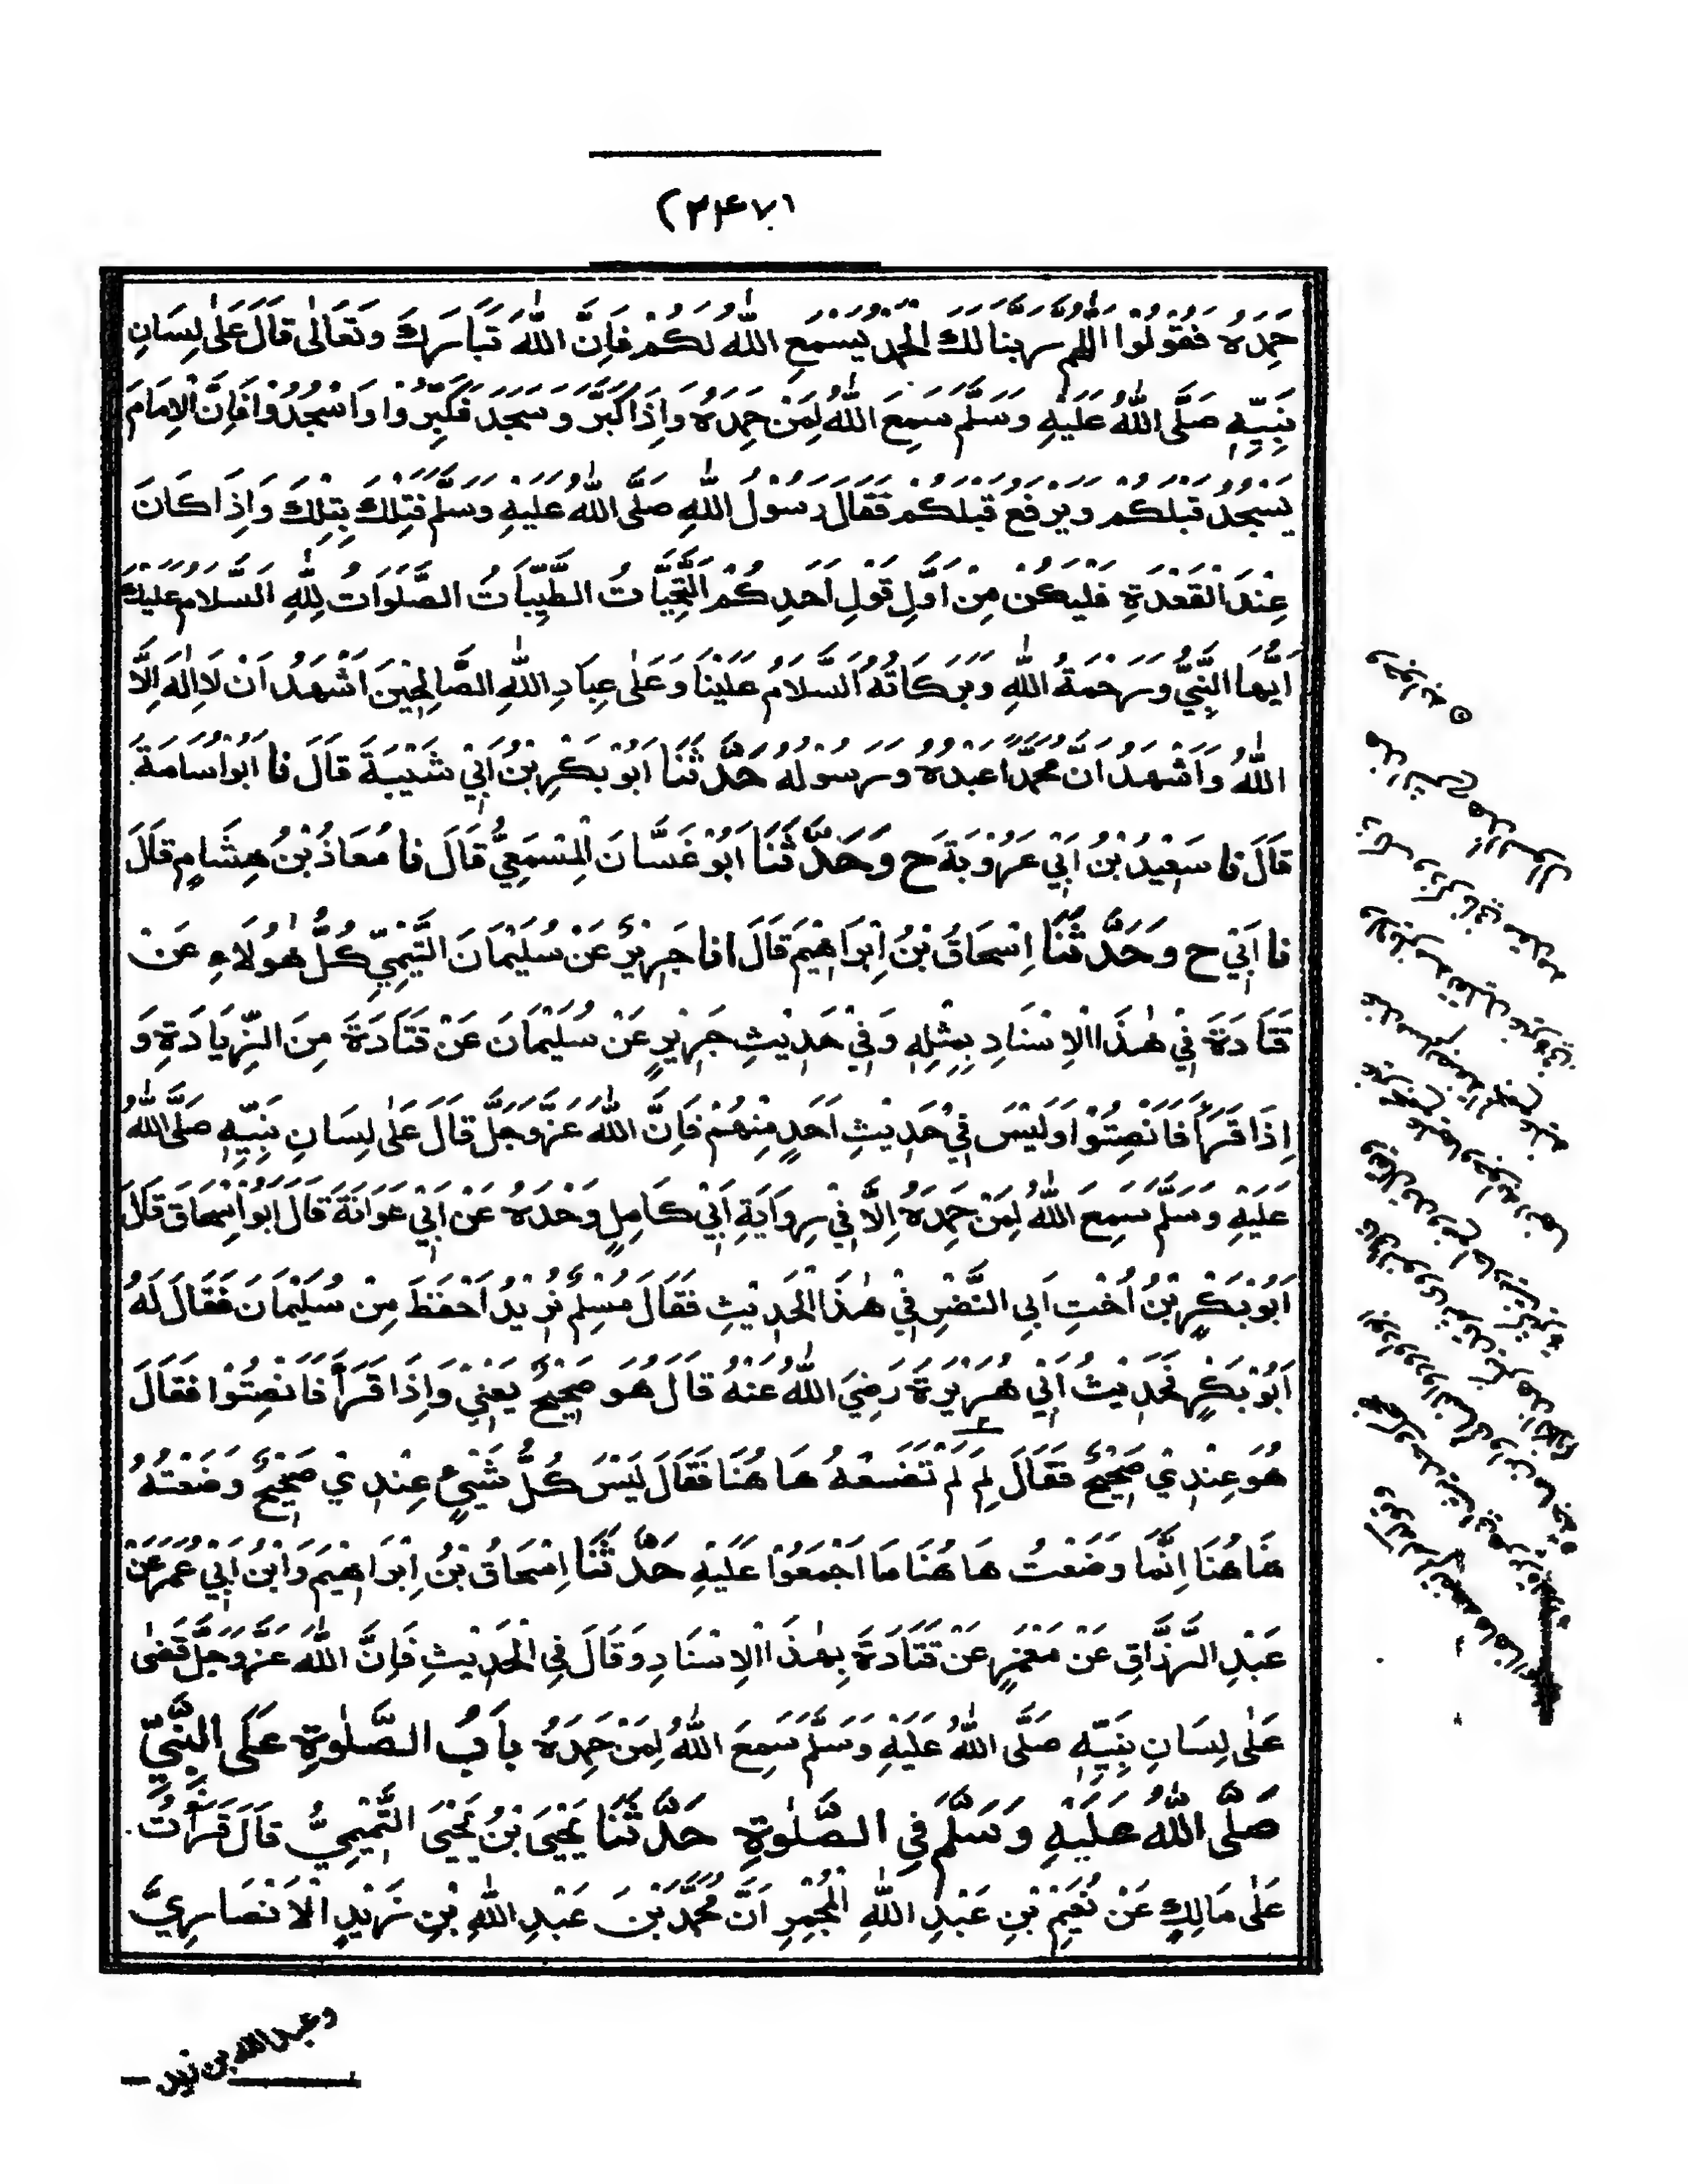 (۲۴۷)
حَمِدَهُ فَقُولُوْا اَللّٰهُمَّ رَبَّنَا لَكَ الْحَمْدُ يَسْمَعِ اللّٰهُ لَكُمْ فَاِنَّ اللّٰهَ تَبَارَكَ وَتَعَالٰى قَالَ عَلٰى لِسَانِ
نَبِيِّهٖ صَلَّى اللّٰهُ عَلَيْهِ وَسَلَّمَ سَمِعَ اللّٰهُ لِمَنْ حَمِدَهُ وَاِذَا كَبَّرَ وَسَجَدَ فَكَبِّرُوا وَاسْجُدُوْا فَاِنَّ الْاِمَامَ
يَسْجُدُ قَبْلَكُمْ وَيَرْفَعُ قَبْلَكُمْ فَقَالَ رَسُوْلُ اللّٰهِ صَلَّى اللّٰهُ عَلَيْهِ وَسَلَّمَ فَتِلْكَ بِتِلْكَ وَاِذَا كَانَ
عِنْدَ الْقَعْدَةِ فَلْيَكُنْ مِنْ اَوَّلِ قَوْلِ اَحَدِكُمْ اَلتَّحِيَّاتُ الطَّيِّبَاتُ الصَّلَوَاتُ لِلّٰهِ اَلسَّلَامُ عَلَيْكَ
اَيُّهَا النَّبِيُّ وَرَحْمَةُ اللّٰهِ وَبَرَكَاتُهُ اَلسَّلَامُ عَلَيْنَا وَعَلٰى عِبَادِ اللّٰهِ الصَّالِحِيْنَ اَشْهَدُ اَنْ لَا اِلٰهَ اِلَّا
اللّٰهُ وَاَشْهَدُ اَنَّ مُحَمَّدًا عَبْدُهُ وَرَسُوْلُهُ حَدَّثَنَا اَبُوْ بَكْرِ بْنُ اَبِيْ شَيْبَةَ قَالَ نا اَبُوْ اُسَامَةَ
قَالَ نا سَعِيْدُ بْنُ اَبِيْ عَرُوْبَةَ ح وَحَدَّثَنَا اَبُوْ غَسَّانَ الْمِسْمَعِيُّ قَالَ نا مُعَاذُ بْنُ هِشَامٍ قَالَ
نا اَبِيْ ح وَحَدَّثَنَا اِسْحَاقُ بْنُ اِبْرَاهِيْمَ قَالَ انا جَرِيْرٌ عَنْ سُلَيْمَانَ التَّيْمِيِّ كُلُّ هٰؤُلَاءِ عَنْ
قَتَادَةَ فِيْ هٰذَا الْاِسْنَادِ بِمِثْلِهٖ وَفِيْ حَدِيْثِ جَرِيْرٍ عَنْ سُلَيْمَانَ عَنْ قَتَادَةَ مِنَ الزِّيَادَةِ وَ
اِذَا قَرَأَ فَانْصِتُوْا وَلَيْسَ فِيْ حَدِيْثِ اَحَدٍ مِنْهُمْ فَاِنَّ اللّٰهَ عَزَّ وَجَلَّ قَالَ عَلٰى لِسَانِ نَبِيِّهٖ صَلَّى اللّٰهُ
عَلَيْهِ وَسَلَّمَ سَمِعَ اللّٰهُ لِمَنْ حَمِدَهُ اِلَّا فِيْ رِوَايَةِ اَبِيْ كَامِلٍ وَحْدَهُ عَنْ اَبِيْ عَوَانَةَ قَالَ اَبُوْ اِسْحَاقَ قَالَ
اَبُوْ بَكْرِ بْنُ اُخْتِ اَبِي النَّضْرِ فِيْ هٰذَا الْحَدِيْثِ فَقَالَ مُسْلِمٌ تُرِيْدُ اَحْفَظَ مِنْ سُلَيْمَانَ فَقَالَ لَهُ
اَبُوْ بَكْرٍ فَحَدِيْثُ اَبِيْ هُرَيْرَةَ رَضِيَ اللّٰهُ عَنْهُ قَالَ هُوَ صَحِيْحٌ يَعْنِيْ وَاِذَا قَرَأَ فَانْصِتُوْا فَقَالَ
هُوَ عِنْدِيْ صَحِيْحٌ فَقَالَ لِمَ لَمْ تَضَعْهُ هَا هُنَا فَقَالَ لَيْسَ كُلُّ شَيْءٍ عِنْدِيْ صَحِيْحٌ وَضَعْتُهُ
هَا هُنَا اِنَّمَا وَضَعْتُ هَا هُنَا مَا اَجْمَعُوْا عَلَيْهِ حَدَّثَنَا اِسْحَاقُ بْنُ اِبْرَاهِيْمَ وَابْنُ اَبِيْ عُمَرَ عَنْ
عَبْدِ الرَّزَّاقِ عَنْ مَعْمَرٍ عَنْ قَتَادَةَ بِهٰذَا الْاِسْنَادِ وَقَالَ فِي الْحَدِيْثِ فَاِنَّ اللّٰهَ عَزَّ وَجَلَّ قَضٰى
عَلٰى لِسَانِ نَبِيِّهٖ صَلَّى اللّٰهُ عَلَيْهِ وَسَلَّمَ سَمِعَ اللّٰهُ لِمَنْ حَمِدَهُ بَابُ الصَّلٰوةِ عَلَى النَّبِيِّ
صَلَّى اللّٰهُ عَلَيْهِ وَسَلَّمَ فِي الصَّلٰوةِ حَدَّثَنَا يَحْيَى بْنُ يَحْيَى التَّمِيْمِيُّ قَالَ قَرَأْتُ
عَلٰى مَالِكٍ عَنْ نُعَيْمِ بْنِ عَبْدِ اللّٰهِ الْمُجْمِرِ اَنَّ مُحَمَّدَ بْنَ عَبْدِ اللّٰهِ بْنِ زَيْدٍ الْاَنْصَارِيَّ
وعبد الله بن زيد